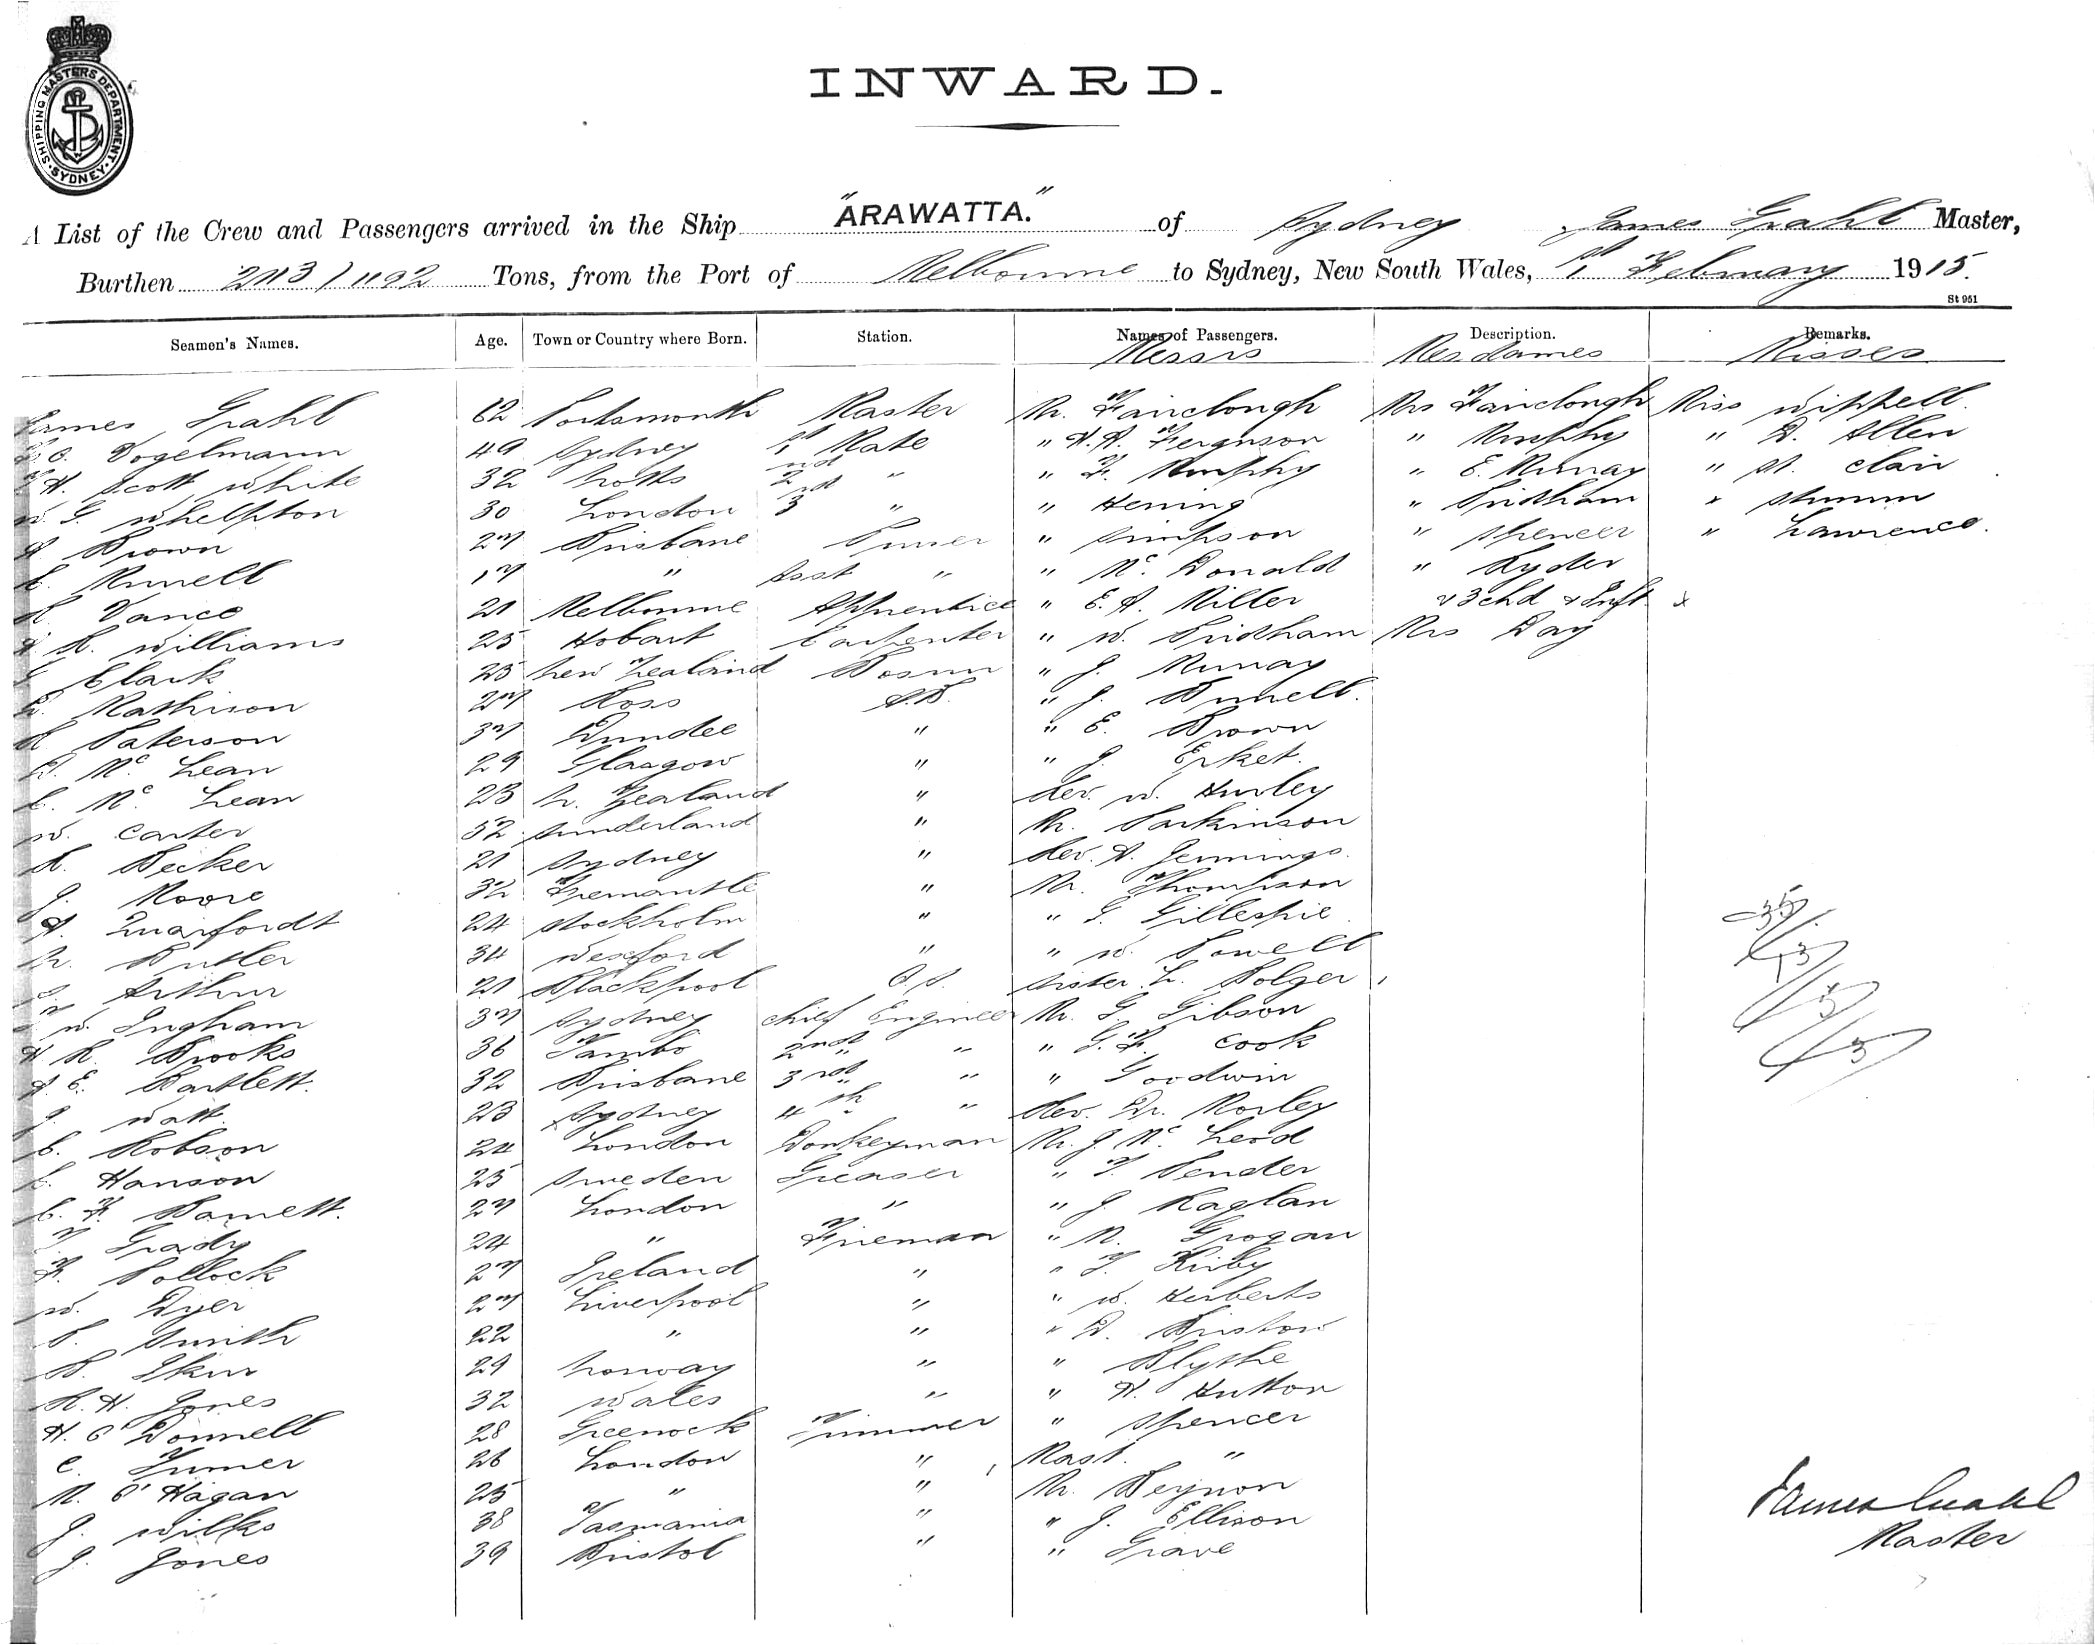 SHIPPING MASTERS DEPARTMENT · SYDNEY ·
INWARD.
A List of the Crew and Passengers arrived in the Ship "ARAWATTA." of Sydney James Grahl Master,
Burthen 2113/1192 Tons, from the Port of Melbourne to Sydney, New South Wales, 1st February 1915.
St 951
Seamen's Names. Age. Town or Country where Born. Station. Names of Passengers. Description. Remarks.
Messrs Mesdames Misses
James Grahl 62 Portsmouth Master Mr. Fairclough Mrs Fairclough Miss Wippell.
Vogelmann 49 Sydney 1st Mate " H. A. Ferguson " Murphy " D. Allen
H. Scott White 32 Notts 2nd " " F. Murphy " E. Murray " St. Clair
W. G. Whelpton 30 London 3rd " " Hening " Pridham " Stumm
Brown 27 Brisbane Purser " Simpson " Spencer " Lawrence.
Runell 17 " Asst " " Mc. Donald " Ryder
R Vance 21 Melbourne Apprentice " E. A. Miller & 3 chd & Inft x
R. Williams 25 Hobart Carpenter " W. Pridham Mrs Day
G Clark 25 New Zealand Bosun " J. Murray
Mathison 27 Ross A.B. " J. Burrell.
R Paterson 37 Dundee " " E. Brown
D. Mc. Lean 29 Glasgow " " J. Erket.
C. Mc. Lean 23 N. Zealand " Rev. W. Hurley
W. Carter 52 Sunderland " Mr. Parkinson
R. Becker 21 Sydney " Rev. A. Jennings.
J. Moore 32 Fremantle " Mr. Thompson
A. Quarfordt 24 Stockholm " " G. Gillespie.
N. Butler 34 Wexford " " W. Powell
Arthur 21 Blackpool O.S. Sister L. Bolger
W. Ingham 37 Sydney Chief Engineer Mr. G. Gibson
H. R. Brooks 36 Tambo 2nd " " " G. F. Cook
A. E. Bartlett. 32 Brisbane 3rd " " " Goodwin
J. Watt. 23 Sydney 4th " " Rev. Dr. Morley
C. Robson 24 London Donkeyman Mr. J. Mc. Leod
L. Hanson 25 Sweden Greaser " T. Pender
C. F. Barnett. 27 London " " J. Raglan
T. Grady 24 " Fireman " M. Grogan
F. Pollock 27 Ireland " " T. Kirby
W. Dyer 27 Liverpool " " W. Herberts
P. Smith 22 " " " D. Bristow
B. 29 Norway " " Blythe
R. H. Jones 32 Wales " " H. Hutton
H. O'Donnell 28 Greenock Trimmer " Spencer
C. Turner 26 London " Mast. "
M. O'Hagan 25 " " Mr. Beynon
J. Wilks 38 Tasmania " " J. Ellison
J. Jones 39 Bristol " " Grave
James Grahl
Master